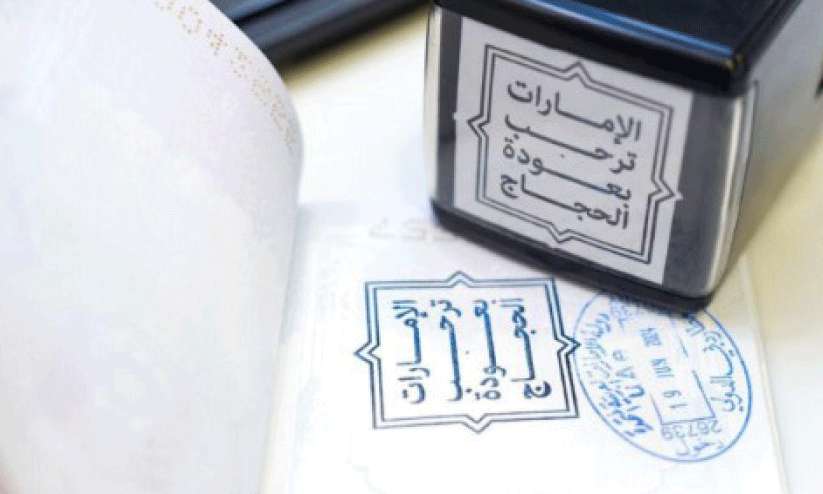 الإمارات
ترحب
بعودة
الحجاج
الإمارات
ترحب
بعودة
الحجاج
U.A.E
19 JUN 2024
26739
دخول